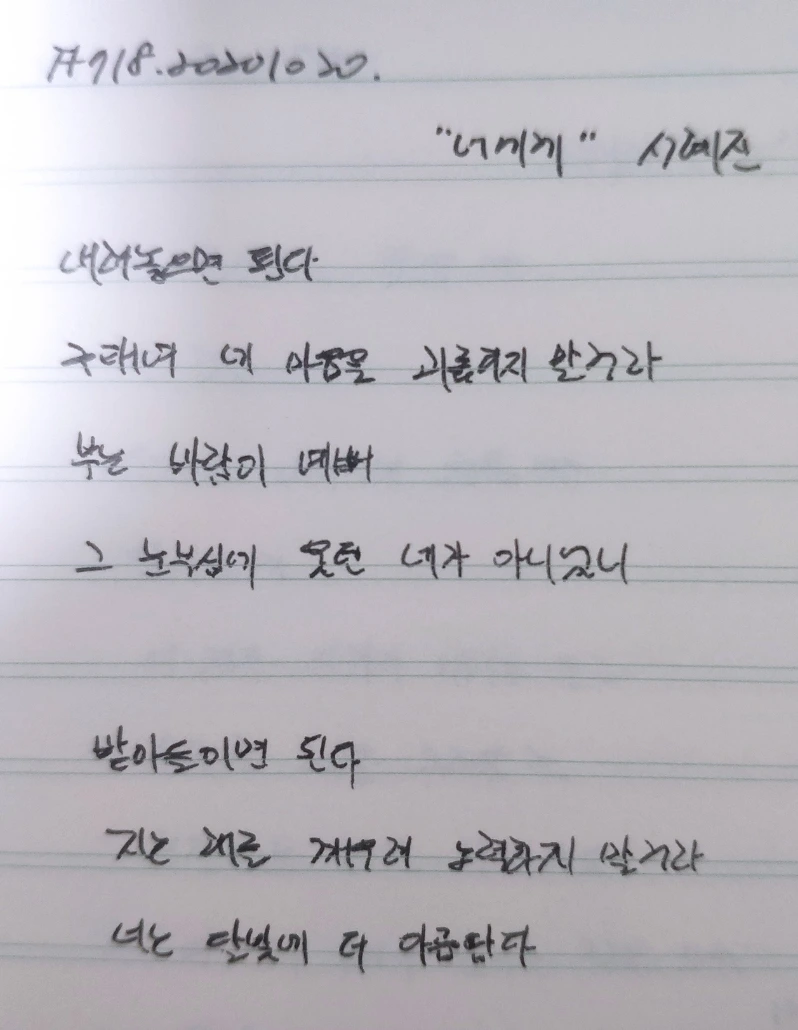 #718.20201020.
"너에게" 서혜진
내려놓으면 된다
구태여 네 마음을 괴롭히지 말거라
부는 바람이 예뻐
그 눈부심에 웃던 네가 아니었니
받아들이면 된다
지는 해를 깨우려 노력하지 말거라
너는 달빛에 더 아름답다